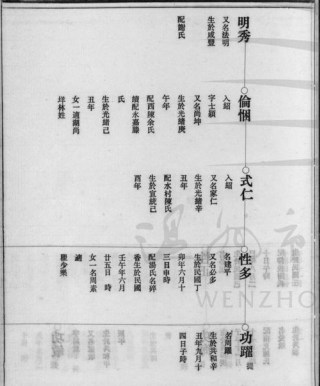 明秀
又名法明
生於咸豐
配謝氏
倫悃
入紹
字士禎
又名尚坤
生於光緒庚
午年
配西陳余氏
續配永嘉滕
氏
生於光緒己
丑年
女一適潮尚
垟林姓
式仁
入紹
又名家仁
生於光緒辛
丑年
配水村陳氏
生於宣統己
酉年
性多
名建平
又名必多
生於民國丁
卯年六月十
三日申時
配楊氏名婷
香生於民國
壬午年六月
廿五日 時
女一名周素
適
瞿少榮
功躍
名周躍
生於共和辛
丑年九月十
四日子時
WENZHO